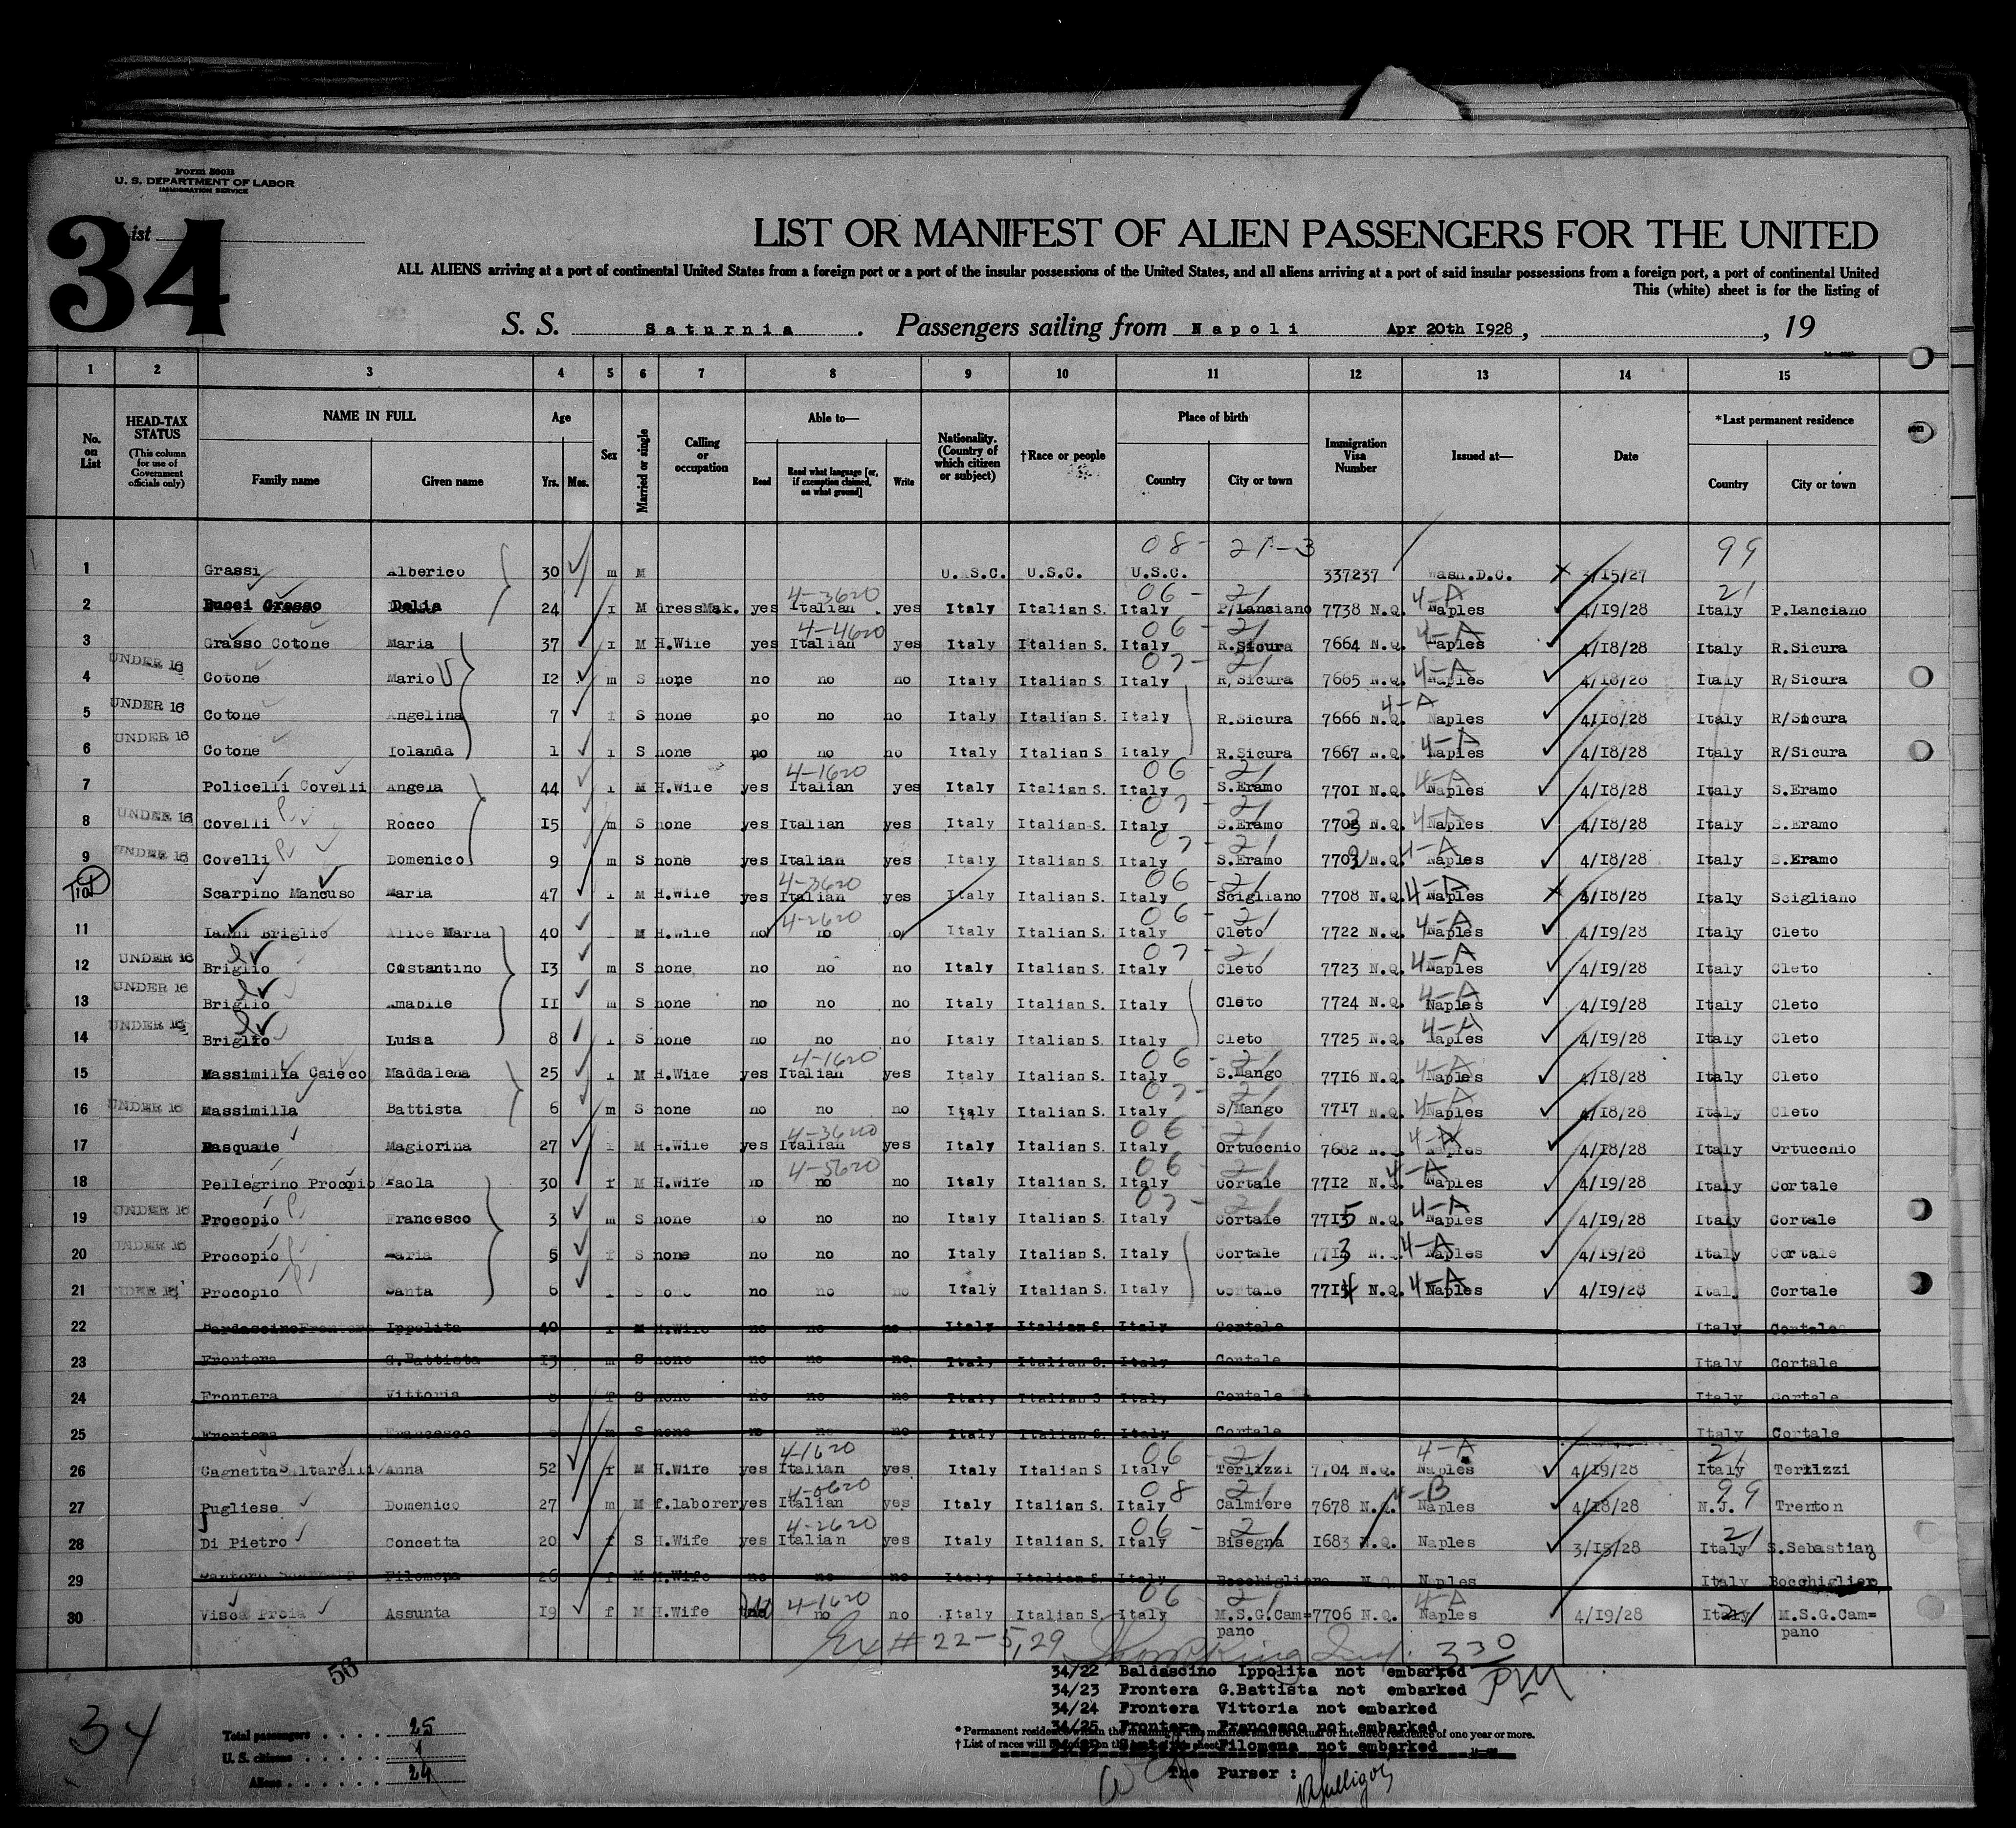 Form 500B
U. S. DEPARTMENT OF LABOR
IMMIGRATION SERVICE
34
List
LIST OR MANIFEST OF ALIEN PASSENGERS FOR THE UNITED
ALL ALIENS arriving at a port of continental United States from a foreign port or a port of the insular possessions of the United States, and all aliens arriving at a port of said insular possessions from a foreign port, a port of continental United
This (white) sheet is for the listing of
S. S. Saturnia. Passengers sailing from Napoli Apr 20th 1928, , 19
1 2 3 4 5 6 7 8 9 10 11 12 13 14 15
No. on List HEAD-TAX STATUS (This column for use of Government officials only) NAME IN FULL Family name Given name Age Yrs. Mos. Sex Married or single Calling or occupation Able to— Read Read what language [or, if exemption claimed, on what ground] Write Nationality. (Country of which citizen or subject) †Race or people Place of birth Country City or town Immigration Visa Number Issued at— Date *Last permanent residence Country City or town
08 - 21-3 99
1 Grassi Alberico 30 m M U.S.C. U.S.C. U.S.C. 337237 Wash.D.C. 3/15/27
4-3620 06 - 21 4-A 21
2 Bucci Grasso Delia 24 f M dressMak. yes Italian yes Italy Italian S. Italy P/Lanciano 7738 N.Q. Naples 4/19/28 Italy P.Lanciano
4-4620 06 - 21 4-A
3 Grasso Cotone Maria 37 f M H.Wife yes Italian yes Italy Italian S. Italy R.Sicura 7664 N.Q. Naples 4/18/28 Italy R.Sicura
UNDER 16 07 - 21 4-A
4 Cotone Mario 12 m S none no no no Italy Italian S. Italy R/Sicura 7665 N.Q. Naples 4/18/28 Italy R/Sicura
UNDER 16 4-A
5 Cotone Angelina 7 f S none no no no Italy Italian S. Italy R.Sicura 7666 N.Q. Naples 4/18/28 Italy R/Sicura
UNDER 16 4-A
6 Cotone Iolanda 1 f S none no no no Italy Italian S. Italy R.Sicura 7667 N.Q. Naples 4/18/28 Italy R/Sicura
4-1620 06 - 21 4-A
7 Policelli Covelli Angela 44 f M H.Wife yes Italian yes Italy Italian S. Italy S.Eramo 7701 N.Q. Naples 4/18/28 Italy S.Eramo
UNDER 16 07 - 21 4-A
8 Covelli Rocco 15 m S none yes Italian yes Italy Italian S. Italy S.Eramo 7703 N.Q. Naples 4/18/28 Italy S.Eramo
UNDER 16 07 - 21 4-A
9 Covelli Domenico 9 m S none yes Italian yes Italy Italian S. Italy S.Eramo 7702 N.Q. Naples 4/18/28 Italy S.Eramo
4-3620 06 - 21 4-A
10 Scarpino Mancuso Maria 47 f M H.Wife yes Italian yes Italy Italian S. Italy Scigliano 7708 N.Q. Naples 4/18/28 Italy Scigliano
4-2620 06 - 21 4-A
11 Ianni Briglio Alice Maria 40 M H.Wife no no no Italy Italian S. Italy Cleto 7722 N.Q. Naples 4/19/28 Italy Cleto
UNDER 16 07 - 21 4-A
12 Briglio Costantino 13 m S none no no no Italy Italian S. Italy Cleto 7723 N.Q. Naples 4/19/28 Italy Cleto
UNDER 16 4-A
13 Briglio Amabile 11 m S none no no no Italy Italian S. Italy Cleto 7724 N.Q. Naples 4/19/28 Italy Cleto
UNDER 16 4-A
14 Briglio Luisa 8 f S none no no no Italy Italian S. Italy Cleto 7725 N.Q. Naples 4/19/28 Italy Cleto
4-1620 06 - 21 4-A
15 Massimilla Gaieco Maddalena 25 f M H.Wife yes Italian yes Italy Italian S. Italy S.Mango 7716 N.Q. Naples 4/18/28 Italy Cleto
UNDER 16 07 - 21 4-A
16 Massimilla Battista 6 m S none no no no Italy Italian S. Italy S/Mango 7717 N.Q. Naples 4/18/28 Italy Cleto
4-3620 06 - 21 4-A
17 Pasquale Magiorina 27 f M H.Wife yes Italian yes Italy Italian S. Italy Ortucchio 7682 N.Q. Naples 4/18/28 Italy Ortucchio
4-5620 06 - 21 4-A
18 Pellegrino Procopio Paola 30 f M H.wife no no no Italy Italian S. Italy Cortale 7712 N.Q. Naples 4/19/28 Italy Cortale
UNDER 16 07 - 21 4-A
19 Procopio Francesco 3 m S none no no no Italy Italian S. Italy Cortale 7715 N.Q. Naples 4/19/28 Italy Cortale
UNDER 16 4-A
20 Procopio Maria 5 f S none no no no Italy Italian S. Italy Cortale 7713 N.Q. Naples 4/19/28 Italy Cortale
UNDER 16 4-A
21 Procopio Santa 6 f S none no no no Italy Italian S. Italy Cortale 7714 N.Q. Naples 4/19/28 Italy Cortale
22 Ippolita 40 f M H.Wife no no no Italy Italian S. Italy Cortale Italy Cortale
23 Frontera G.Battista 13 m S none no no no Italy Italian S. Italy Cortale Italy Cortale
24 Frontera Vittoria f S none no no no Italy Italian S Italy Cortale Italy Cortale
25 Frontera Francesco m S none no no no Italy Italian S. Italy Cortale Italy Cortale
4-1620 06 - 21 4-A 21
26 Cagnetta Saltarelli Anna 52 f M H.Wife yes Italian yes Italy Italian S Italy Terlizzi 7704 N.Q. Naples 4/19/28 Italy Terlizzi
4-0620 08 21 4-B 99
27 Pugliese Domenico 27 m M f.laborer yes Italian yes Italy Italian S. Italy Calmiere 7678 N.Q. Naples 4/18/28 N.J. Trenton
4-2620 06 - 21 21
28 Di Pietro Concetta 20 f S H.Wife yes Italian yes Italy Italian S. Italy Bisegna 1683 N.Q. Naples 3/15/28 Italy S.Sebastiano
29 Santoro Filomena 26 f M H.Wife no no no Italy Italian S. Italy Bocchigliero N.Q. Naples Italy Bocchiglier
4-1620 06 - 21 4-A
30 Visca Proia Assunta 19 f M H.Wife no no Italy Italian S. Italy M.S.G.Cam= 7706 N.Q. Naples 4/19/28 Italy 21 M.S.G.Cam=
pano pano
Ex # 22-5, 29 330 PM
56
34/22 Baldascino Ippolita not embarked
34/23 Frontera G.Battista not embarked
34/24 Frontera Vittoria not embarked
34/25 Frontera Francesco not embarked
* Permanent residence within the meaning of this manifest shall be actual or intended residence of one year or more.
† List of races will be found on the back of this sheet.
Filomena not embarked
The Purser :
34
Total passengers 25
U. S. citizens 1
Aliens 24